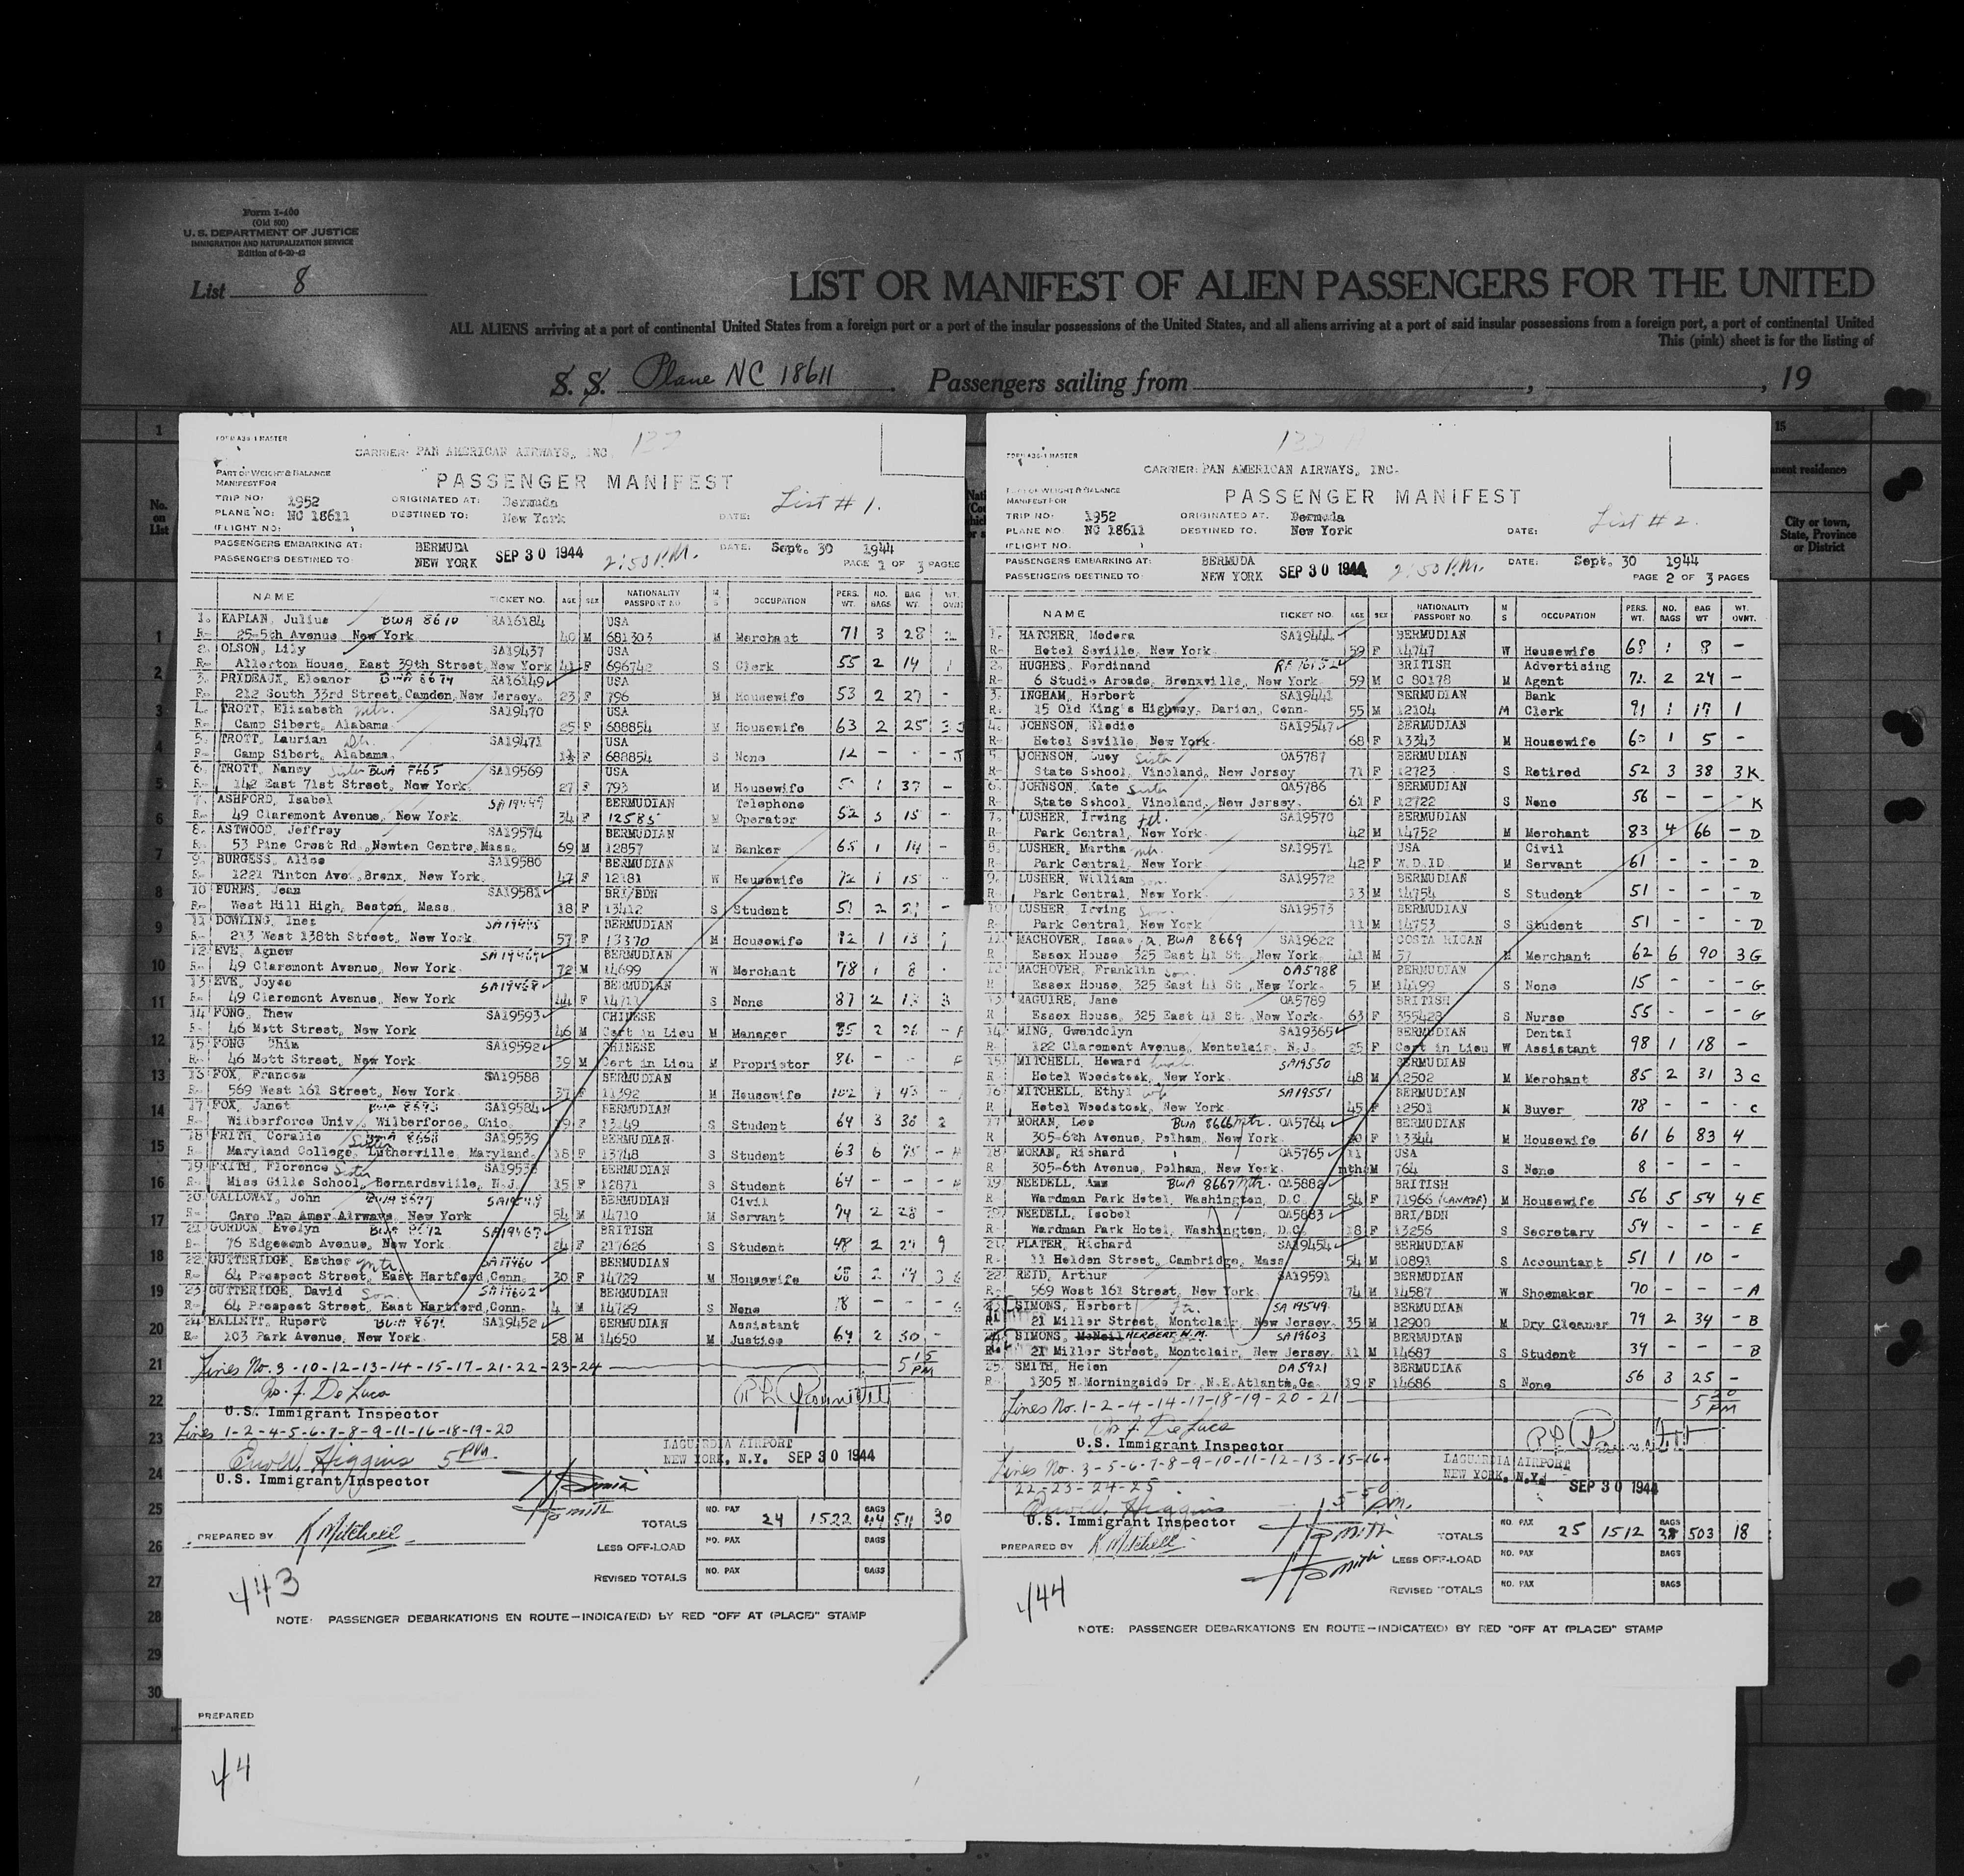 Form I-400
(Old 500)
U. S. DEPARTMENT OF JUSTICE
IMMIGRATION AND NATURALIZATION SERVICE
Edition of 6-20-42
List 8
LIST OR MANIFEST OF ALIEN PASSENGERS FOR THE UNITED
ALL ALIENS arriving at a port of continental United States from a foreign port or a port of the insular possessions of the United States, and all aliens arriving at a port of said insular possessions from a foreign port, a port of continental United
This (pink) sheet is for the listing of
S. S. Plane NC 18611 . Passengers sailing from , , 19
CARRIER: PAN AMERICAN AIRWAYS, INC.
PART OF WEIGHT & BALANCE
MANIFEST FOR
PASSENGER MANIFEST
TRIP NO: 1952 ORIGINATED AT: Bermuda
PLANE NO: NC 18611 DESTINED TO: New York DATE: List # 1.
(FLIGHT NO: )
PASSENGERS EMBARKING AT: BERMUDA SEP 30 1944 2:50 P.M. DATE: Sept. 30 1944
PASSENGERS DESTINED TO: NEW YORK PAGE 1 OF 3 PAGES
NAME TICKET NO. AGE SEX NATIONALITY PASSPORT NO M S OCCUPATION PERS. WT. NO. BAGS BAG WT.
1. KAPLAN, Julius BWA 8610 RA16184 USA
R- 25-5th Avenue, New York 40 M 681303 M Merchant 71 3 28
2. OLSON, Lily SA19437 USA
R- Allerton House, East 39th Street, New York 41 F 696742 S Clerk 55 2 14 1
3. PRIDEAUX, Eleanor BWA 8674 RA16149 USA
R- 212 South 33rd Street, Camden, New Jersey. 23 F 796 M Housewife 53 2 27 -
4. TROTT, Elizabeth mtr. SA19470 USA
R- Camp Sibert, Alabama 25 F 688854 M Housewife 63 2 25 3
5. TROTT, Laurian SA19471 USA
R- Camp Sibert, Alabama 688854 S None 12 - -
6. TROTT, Nancy Sister BWA SA19569 USA
R- 142 East 71st Street, New York 27 F 793 M Housewife 1 37 -
7. ASHFORD, Isabel BERMUDIAN Telephone
R- 49 Claremont Avenue, New York 34 F 12585 M Operator 52 15 -
8. ASTWOOD, Jeffrey SA19574 BERMUDIAN
R- 53 Pine Crest Rd., Newton Centre, Mass. 69 M 12857 M Banker 65 1 14 -
9. BURGESS, Alice SA19580 BERMUDIAN
R- 1221 Tinton Ave., Bronx, New York. 47 F 12181 W Housewife 72 1 15 -
10 BURNS, Jean SA19581 BRI/BDN
R- West Hill High, Boston, Mass 18 F 13412 S Student 51 2 -
11 DOWLING, Inez BERMUDIAN
R- 213 West 138th Street, New York 57 F 13370 M Housewife 72 1 13
12 EVE, Agnew BERMUDIAN
R- 49 Claremont Avenue, New York 72 M 14699 W Merchant 78 1 8
13 EVE, Joyce BERMUDIAN
R- 49 Claremont Avenue, New York 44 F S None 87 2 13 3
14 FONG, Thew SA19593 CHINESE
R- 46 Mott Street, New York 46 M Cert in Lieu M Manager 85 2 26 -
15 FONG Shim SA19592 CHINESE
R- 46 Mott Street, New York 39 M Cert in Lieu M Proprietor 86 - -
16 FOX, Frances SA19588 BERMUDIAN
R- 569 West 161 Street, New York 37 F 11392 M Housewife 102 43 -
17 FOX, Janet BWA 8673 SA19584 BERMUDIAN
R- Wilberforce Univ., Wilberforce, Ohio 19 F 13149 S Student 64 3 38 2
18 FRITH, Coralie Sister BWA 8668 SA19539 BERMUDIAN
R- Maryland College, Lutherville, Maryland. 18 F 13748 S Student 63 6 -
19 FRITH, Florence Sister SA19538 BERMUDIAN
R- Miss Gills School, Bernardsville, N.J. 15 F 12871 S Student 64 - - -
20 GALLOWAY, John BERMUDIAN Civil
R- Care Pan Amer Airways, New York 54 M 14710 M Servant 74 2 28 -
21 GORDON, Evelyn BWA 8672 SA19467 BRITISH
R- 76 Edgecomb Avenue, New York 24 F 217626 S Student 48 2 27 9
22 GUTTERIDGE, Esther mtr. SA19460 BERMUDIAN
R- 64 Prospect Street, East Hartford, Conn. 30 F 14729 M Housewife 68 2 3
23 GUTTERIDGE, David Son. BERMUDIAN
R- 64 Prospect Street, East Hartford, Conn. 4 M 14729 S None 18 - - -
24 HALLETT, Rupert BWA 8671 SA19452 BERMUDIAN Assistant
R- 103 Park Avenue, New York 58 M 14650 M Justice 64 2 30 -
Lines No. 3-10-12-13-14-15-17-21-22-23-24 5 15 PM
Jo. F. De Luca
U.S. Immigrant Inspector
Lines 1-2-4-5-6-7-8-9-11-16-18-19-20
Higgins 5 PM
U.S. Immigrant Inspector
LAGUARDIA AIRPORT
NEW YORK, N.Y. SEP 30 1944
PREPARED BY K Mitchell
TOTALS NO. PAX 24 1522 BAGS 44 511 30
LESS OFF-LOAD NO. PAX BAGS
REVISED TOTALS NO. PAX BAGS
443
NOTE: PASSENGER DEBARKATIONS EN ROUTE—INDICATE(D) BY RED "OFF AT (PLACE)" STAMP
PREPARED
44
CARRIER: PAN AMERICAN AIRWAYS, INC.
PART OF WEIGHT & BALANCE
MANIFEST FOR
PASSENGER MANIFEST
TRIP NO: 1952 ORIGINATED AT. Bermuda
PLANE NO. NC 18611 DESTINED TO: New York DATE: List # 2.
(FLIGHT NO. )
PASSENGERS EMBARKING AT: BERMUDA SEP 30 1944 2:50 P.M. DATE: Sept. 30 1944
PASSENGERS DESTINED TO: NEW YORK PAGE 2 OF 3 PAGES
NAME TICKET NO. AGE SEX NATIONALITY PASSPORT NO. M S OCCUPATION PERS. WT. NO. BAGS BAG WT WT. OVNT.
1. HATCHER, Medora SA19444 BERMUDIAN
R- Hotel Seville, New York 59 F 14747 W Housewife 68 1 8 -
2. HUGHES, Ferdinand BRITISH Advertising
R- 6 Studio Arcade, Bronxville, New York 59 M C 80178 M Agent 72 2 24 -
3. INGHAM, Herbert SA19441 BERMUDIAN Bank
R- 15 Old King's Highway, Darien, Conn. 55 M 12104 M Clerk 91 1 17 1
4. JOHNSON, Elodie SA19547 BERMUDIAN
R- Hotel Seville, New York 68 F 13343 M Housewife 1 5 -
5. JOHNSON, Lucy Sister OA5787 BERMUDIAN
R- State School, Vineland, New Jersey 71 F 12723 S Retired 52 3 38 3 K
6. JOHNSON, Kate Sister OA5786 BERMUDIAN
R- State School, Vineland, New Jersey 61 F 12722 S None 56 - - - K
7. LUSHER, Irving SA19570 BERMUDIAN
R- Park Central, New York 42 M 14752 M Merchant 83 4 66 - D
8. LUSHER, Martha mtr. SA19571 USA Civil
R- Park Central, New York 42 F W.D.ID M Servant 61 - - - D
9. LUSHER, William son. SA19572 BERMUDIAN
R- Park Central, New York 13 M 14754 S Student 51 - - D
10 LUSHER, Irving Son. SA19573 BERMUDIAN
R- Park Central, New York 11 M 14753 S Student 51 - - - D
11 MACHOVER, Isaac BWA 8669 SA19622 COSTA RICAN
R Essex House, 325 East 41 St., New York 41 M 57 M Merchant 62 6 90 3 G
12 MACHOVER, Franklin son. OA5788 BERMUDIAN
R- Essex House, 325 East 41 St., New York. 5 M 14499 S None 15 - - - G
13 MAGUIRE, Jane OA5789 BRITISH
R Essex House, 325 East 41 St., New York. 63 F 355428 S Nurse 55 - - - G
14 MING, Gwendolyn SA19365 BERMUDIAN Dental
R 122 Claremont Avenue, Montclair, N.J. 25 F Cert in Lieu W Assistant 98 1 18 -
15 MITCHELL, Howard SA19550 BERMUDIAN
R Hotel Woodstock, New York 48 M 12502 M Merchant 85 2 31 3 C
16 MITCHELL, Ethyl wife SA19551 BERMUDIAN
R Hotel Woodstock, New York 45 F 12501 M Buyer 78 - - - C
17 MORAN, Lee BWA 8666 Mtr. OA5764 BERMUDIAN
R 305-6th Avenue, Pelham, New York 20 F 13344 M Housewife 61 6 83 4
18 MORAN, Richard OA5765 11 USA
R 305-6th Avenue, Pelham, New York. mths M 764 S None 8 - - -
19 NEEDELL, Ann BWA 8667 Mtr. OA5882 BRITISH
R- Wardman Park Hotel, Washington, D.C. 54 F 71966 (CANADA) M Housewife 56 5 54 4 E
20 NEEDELL, Isobel OA5883 BRI/BDN
R- Wardman Park Hotel, Washington, D.C. 18 F 13256 S Secretary 54 - - E
21 PLATER, Richard SA19454 BERMUDIAN
R- 11 Holden Street, Cambridge, Mass 54 M 10891 S Accountant 51 1 10 -
22 REID, Arthur SA19591 BERMUDIAN
R- 569 West 161 Street, New York. 74 M 14587 W Shoemaker 70 - - - A
23 SIMONS, Herbert SA 19549 BERMUDIAN
R- 21 Miller Street, Montclair, New Jersey. 35 M 12900 M Dry Cleaner 79 2 34 - B
24 SIMONS, McNeil HERBERT W.M. SA19603 BERMUDIAN
R- 21 Miller Street, Montclair, New Jersey. 11 M 14687 S Student 39 - - - B
25. SMITH, Helen OA5921 BERMUDIAN
R 1305 N. Morningside Dr., N.E. Atlanta, Ga. 19 F 14686 S None 56 3 25 -
Lines No. 1-2-4-14-17-18-19-20-21 5 30 PM
Jo. F. De Luca
U.S. Immigrant Inspector
Lines No. 3-5-6-7-8-9-10-11-12-13-15-16-
22-23-24-25 5 50 P.M.
Higgins
U.S. Immigrant Inspector
LAGUARDIA AIRPORT
NEW YORK, N.Y. SEP 30 1944
PREPARED BY K Mitchell
TOTALS NO. PAX 25 1512 BAGS 38 503 18
LESS OFF-LOAD NO. PAX BAGS
REVISED TOTALS NO. PAX BAGS
444
NOTE: PASSENGER DEBARKATIONS EN ROUTE—INDICATE(D) BY RED "OFF AT (PLACE)" STAMP
No. on List
1
1
2
3
4
5
6
7
8
9
10
11
12
13
14
15
16
17
18
19
20
21
22
23
24
25
26
27
28
29
30
15
City or town, State, Province or District